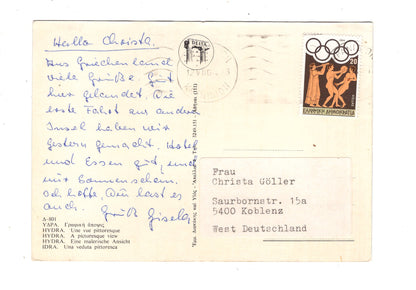 Hallo Christa.
Aus Griechenland
viele Grüße. Gut
hier gelandet. Die
erste Fahrt zur andern
Insel haben wir
gestern gemacht. Hotel
und Essen gut, und
nur Sonnenschein.
Ich hoffe, Du hast es
auch. Gruß Gisela
Δ-801
ΥΔΡΑ. Γραφική άποψις
HYDRA. Une vue pittoresque
HYDRA. A picturesque view
HYDRA. Eine malerische Ansicht
IDRA. Una veduta pittoresca
DELTA
20
ΕΛΛΗΝΙΚΗ ΔΗΜΟΚΡΑΤΙΑ
Frau
Christa Göller
Saurbornstr. 15a
5400 Koblenz
West Deutschland